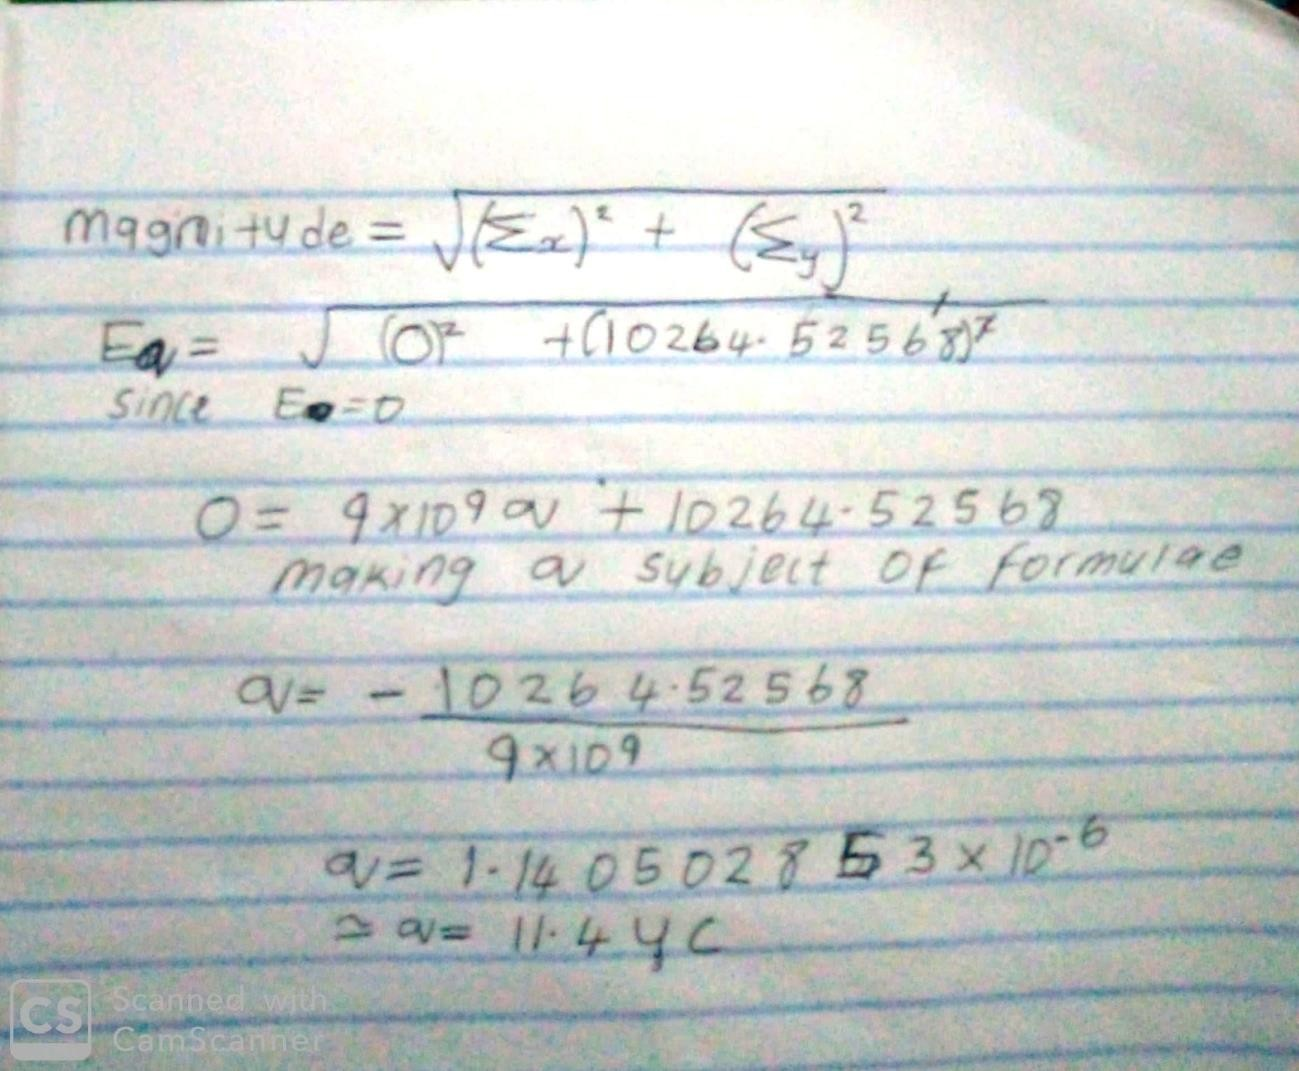 magnitude = √(Σx)² + (Σy)²
Eq = √(0)² + (10264.52568)²
since E =0
0 = 9x10⁹ q + 10264.52568
making q subject of formulae
q = - 10264.52568
9x10⁹
q = 1.140502853 x 10⁻⁶
≃ q = 11.4 μC
CS Scanned with
CamScanner